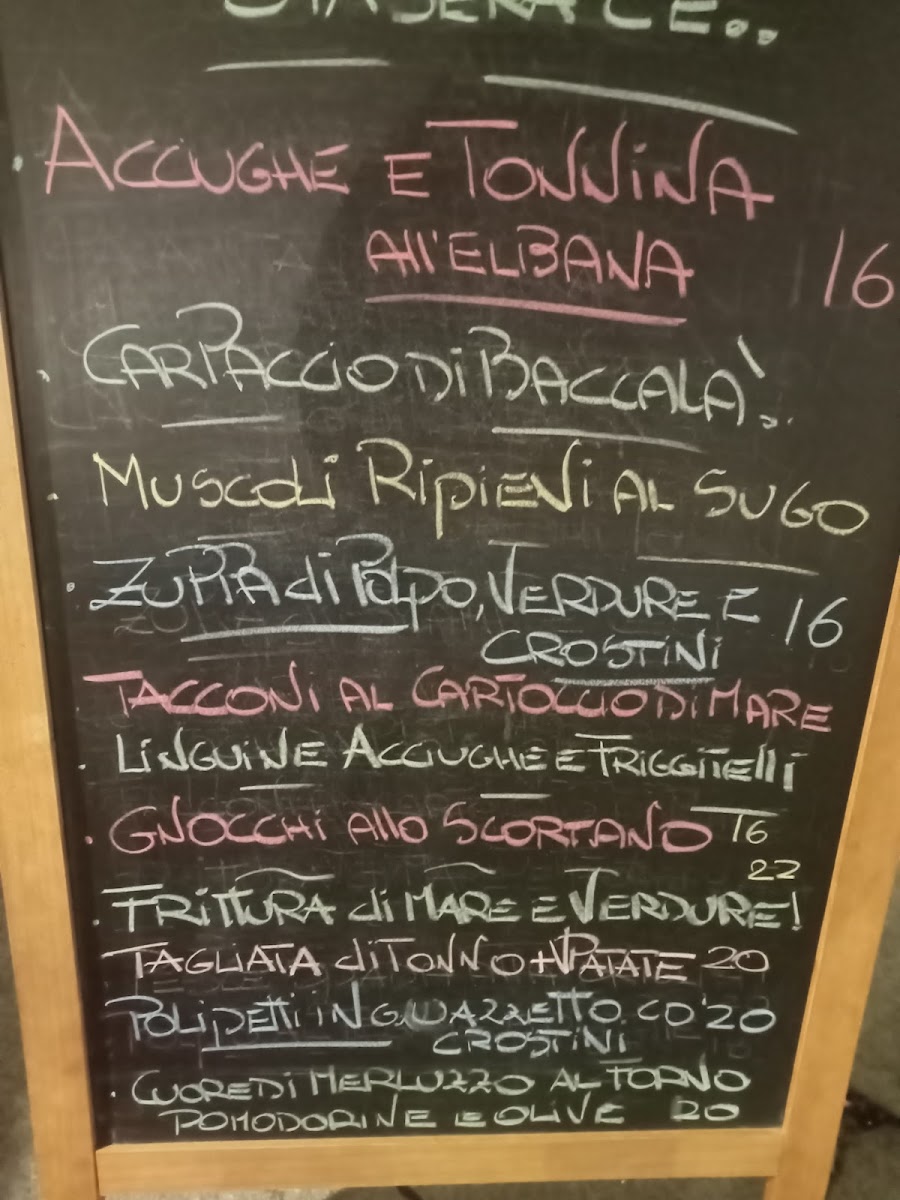 STASERA C'È..
· ACCIUGHE E TONNINA
All'ELBANA 16
· CARPACCIO di BACCALÀ.
· MUSCOLI RIPIENI AL SUGO
· ZUPPA di POLPO, VERDURE E 16
CROSTINI
TACCONI AL CARTOCCIO DI MARE
· LINGUINE ACCIUGHE E FRIGGITELLI
· GNOCCHI Allo SCORTANO 16
22
· FRITTURA di MARE E VERDURE!
TAGLIATA di TONNO + PATATE 20
POLIPETTI IN GUAZZETTO CO' 20
CROSTINI
· CUORE DI MERLUZZO AL FORNO
POMODORINE E OLIVE 20